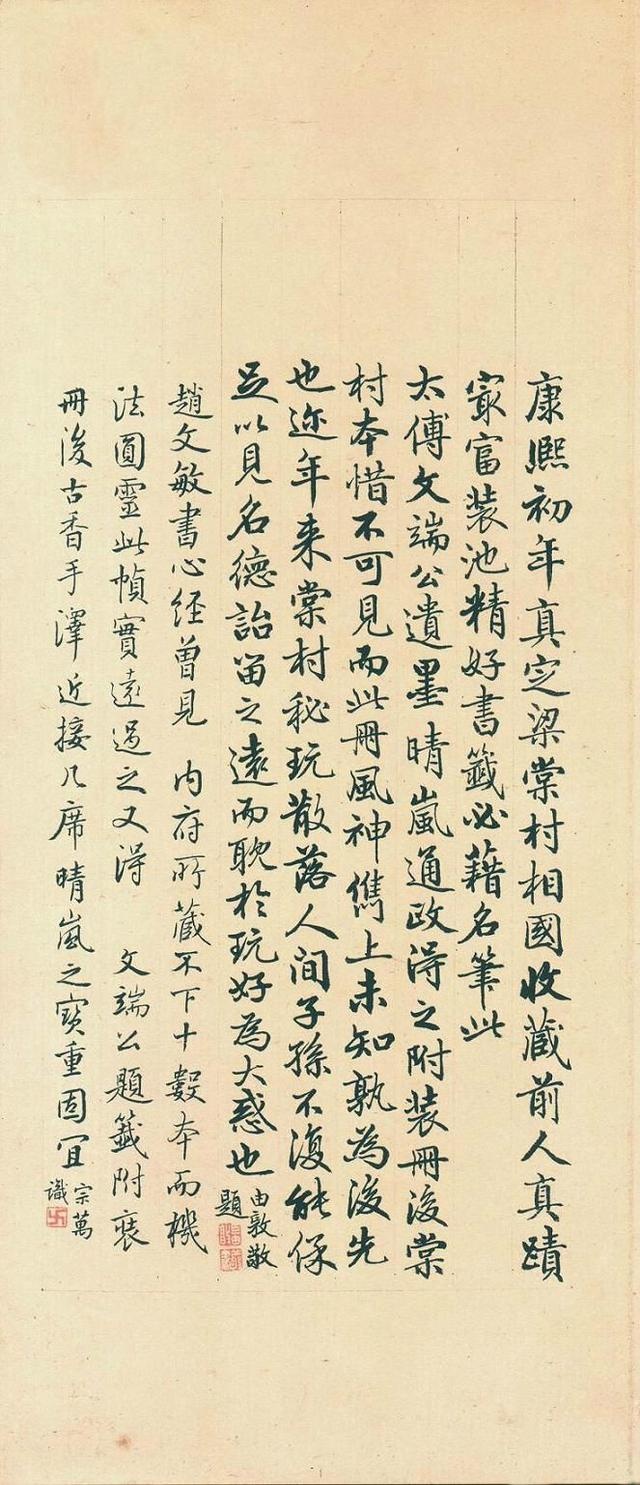 康熙初年真定梁棠村相國收藏前人真蹟
寂富裝池精好書籤必藉名筆此
太傅文端公遺墨晴嵐通政得之附裝冊後棠
村本惜不可見而此冊風神儁上未知孰為後先
也迩年来棠村秘玩散落人间子孫不復能保
足以見名德詒留之遠而耽於玩好為大惑也
由敦敬
題
趙文敏書心經曾見 內府所藏不下十數本而機
法圓靈此幀實遠過之又得 文端公題籤附裝
冊後古香手澤近接几席晴嵐之寶重固宜
宗萬
識